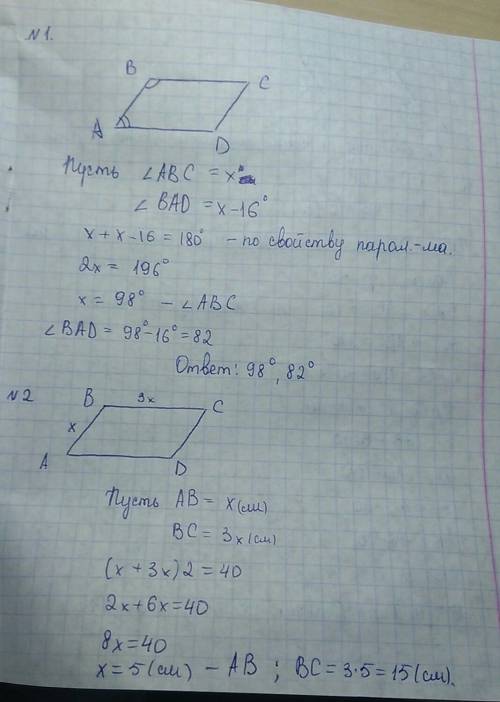 №1.
B
C
A
D
Пусть ∠ABC = x°
∠BAD = x-16°
x + x - 16 = 180° - по свойству парал.-ма.
2x = 196°
x = 98° - ∠ABC
∠BAD = 98°-16° = 82
Ответ: 98°, 82°
№2
B 3x C
x
A
D
Пусть AB = x (см)
BC = 3x (см)
(x + 3x) 2 = 40
2x + 6x = 40
8x = 40
x = 5 (см) - AB ; BC = 3·5 = 15 (см).